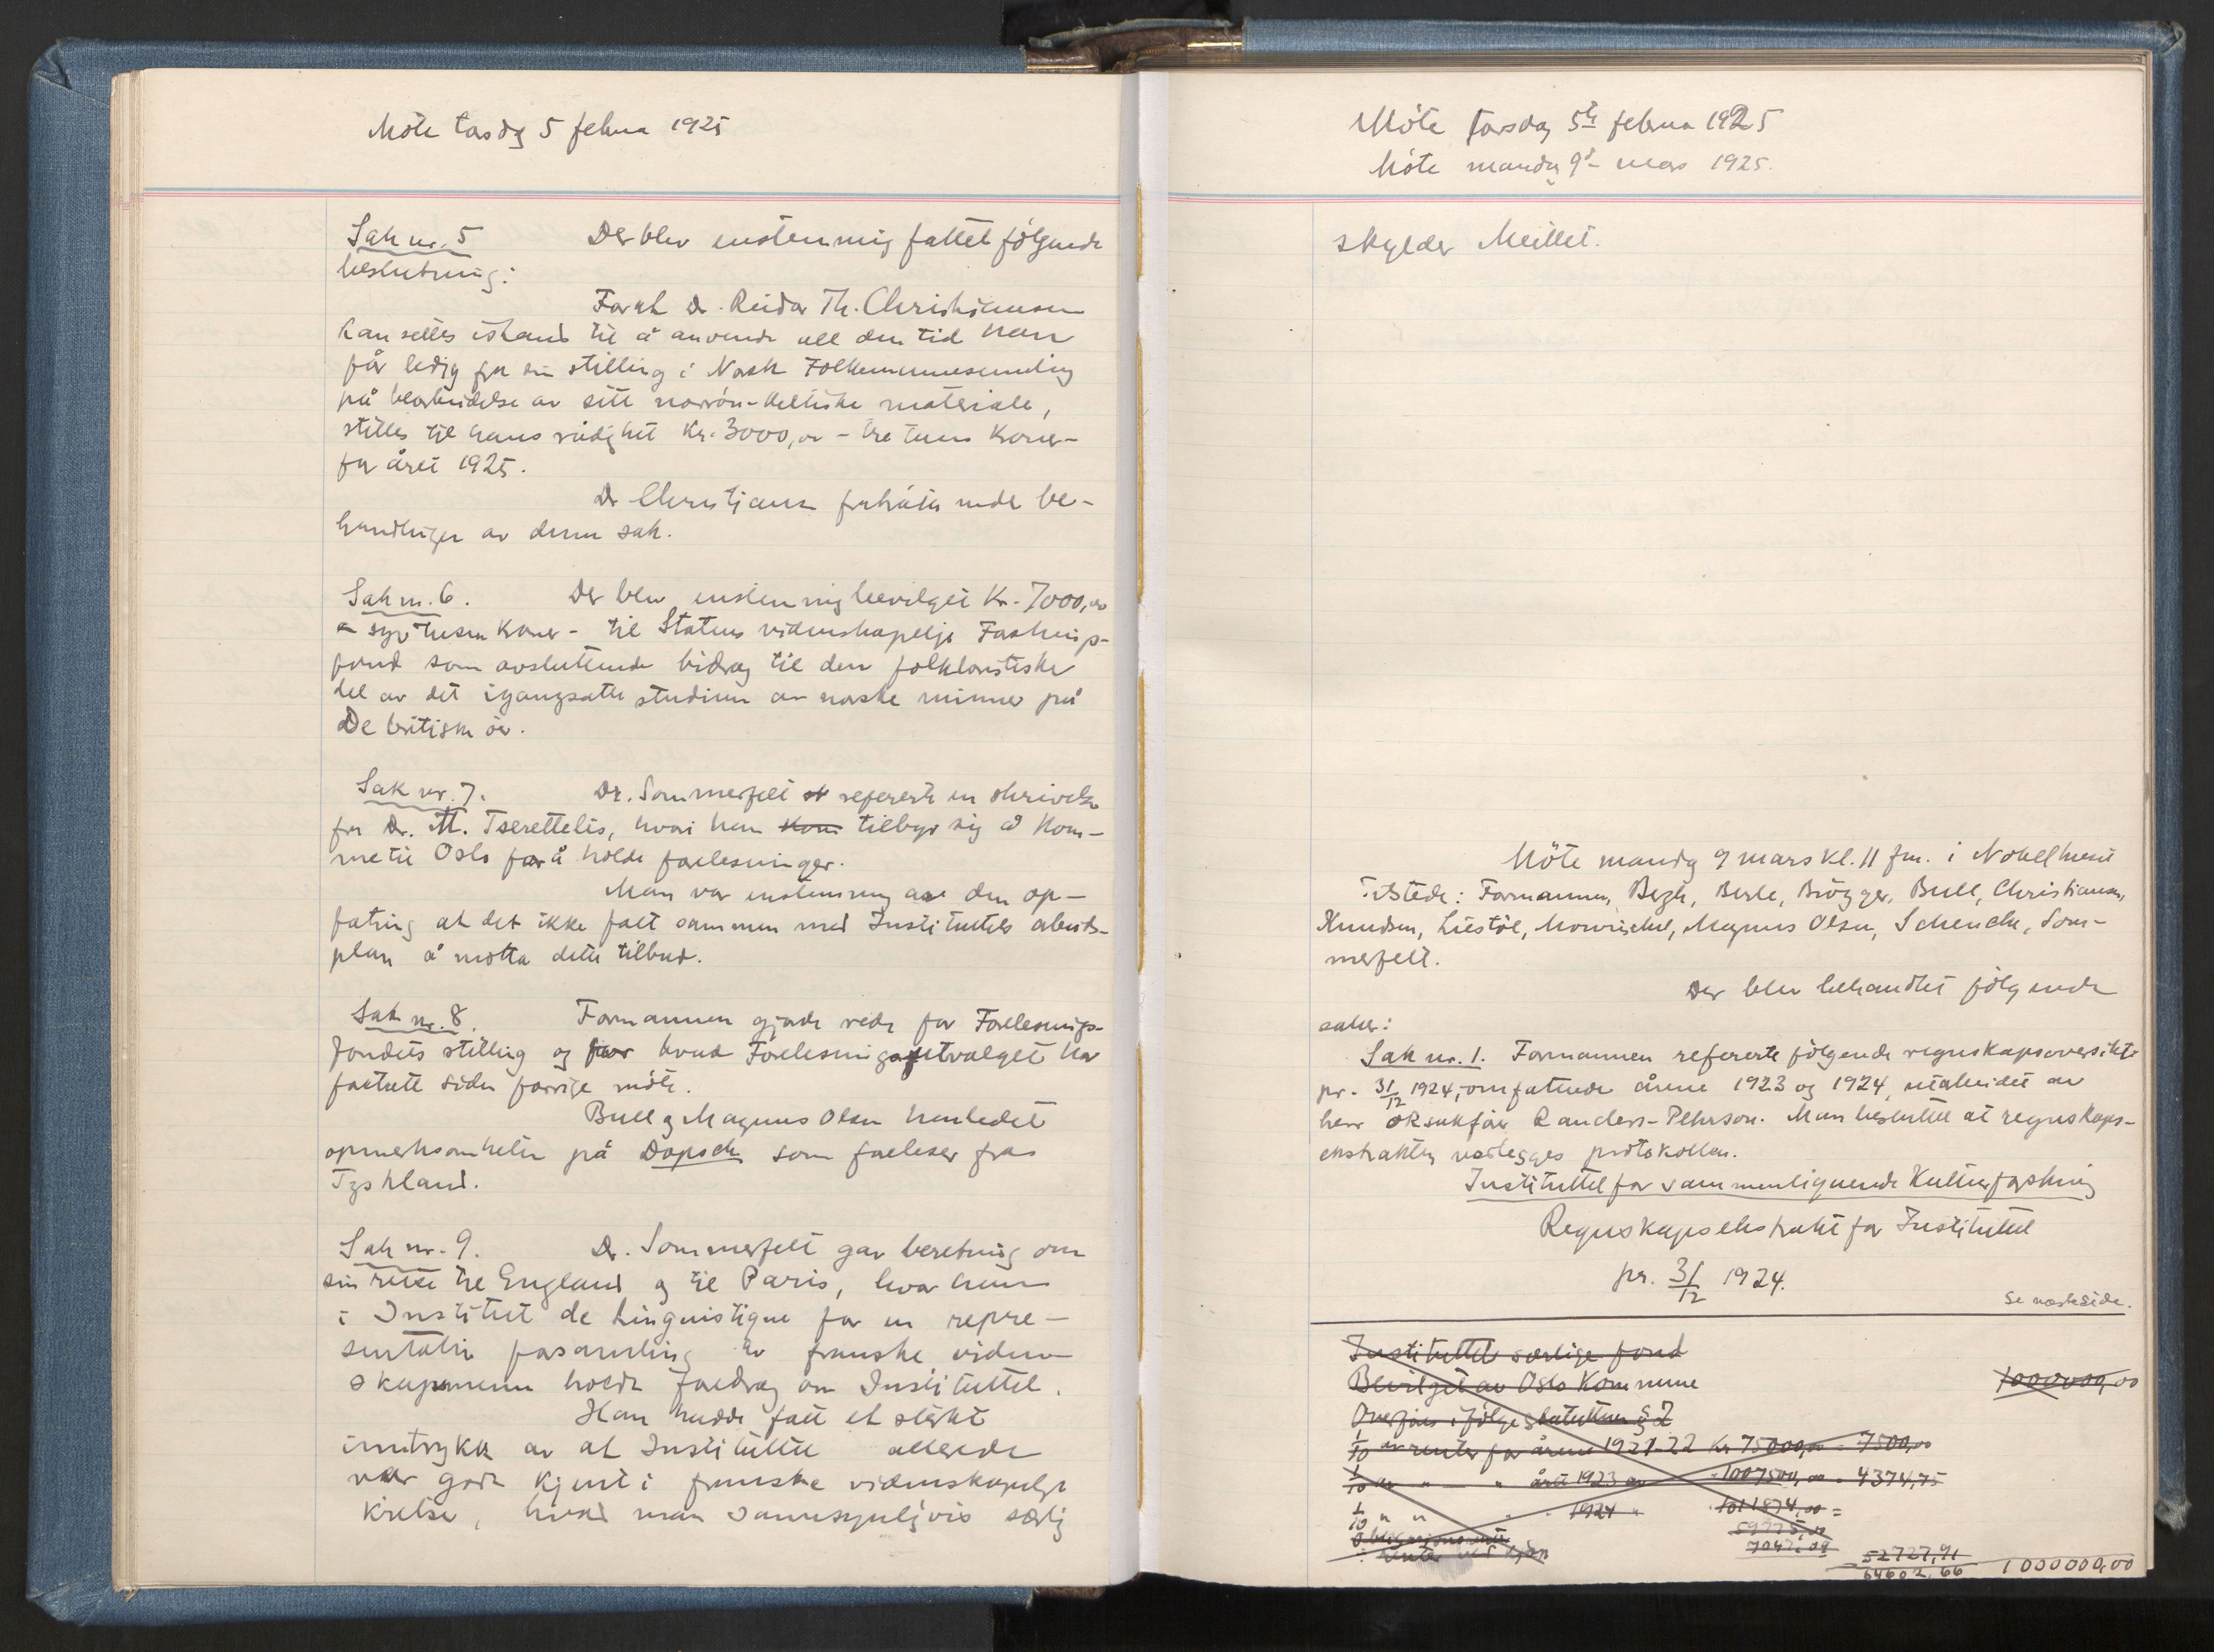 Möte torsdag 5 februar 1925
Sak nr. 5 Der blev enstemmig fattet fölgende
beslutning:
Forat Dr. Reidar Th. Christiansen
kan settes istand til å anvende all den tid han
får ledig fra sin stilling i Norsk Folkeminnesamling
på bearbeidelse av sitt norrön-keltiske materiale,
stilles til hans rådighet Kr. 3000,00 - tre tusen kroner-
for året 1925.
Dr Christiansen fratrådte under be-
handlingen av denne sak.
Sak nr. 6. Der blev enstemmig bevilget Kr. 7000,00
- syv tusen kroner - til Statens videnskapelige Forsknings-
fond som avsluttende bidrag til den folkloristiske
del av det igangsatte studium av norske minner på
De britiske öer.
Sak nr. 7. Dr. Sommerfelt refererte en skrivelse
fra Dr. M. Tserettelis, hvori han kom tilbyr sig å kom-
me til Oslo for å holde forelesninger.
Man var enstemmig av den op-
fatning at det ikke falt sammen med Instituttets arbeids-
plan å motta dette tilbud.
Sak nr. 8. Formannen gjorde rede for Forelesnings-
fondets stilling og for hvad Forelesningsutvalget har
foretatt siden forrige möte.
Bull og Magnus Olsen henledet
opmerksomheten på Dopsch som foreleser fra
Tyskland.
Sak nr. 9. Dr. Sommerfelt gav beretning om
sin reise til England og til Paris, hvor han
i Institut de Linguistique for en repre-
sentativ forsamling av franske viden-
skapsmenn holdt foredrag om Instituttet.
Han hadde fått et sterkt
inntrykk av at Instituttet allerede
var godt kjent i franske videnskapelige
kretser, hvad man sannsynligvis særlig
Möte torsdag 5te februar 1925
Möte mandag 9de mars 1925.
skylder Meillet.
Möte mandag 9 mars kl. 11 fm. i Nobelhuset
Tilstede: Formannen, Bergh, Berle, Brögger, Bull, Christiansen,
Knudsen, Liestöl, Mowinckel, Magnus Olsen, Schencke, Som-
merfelt.
Der blev behandlet fölgende
saker:
Sak nr. 1. Formannen refererte fölgende regnskapsoversikt
pr. 31/12 1924, omfattende årene 1923 og 1924, utarbeidet av
herr oRsakförer Randers-Pehrson. Man besluttet at regnskaps-
ekstrakten vedlegges protokollen.
Instituttet for sammenlignende Kulturforskning
Regnskapsekstrakt for Instituttet
pr. 31/12 1924.
Se næste side.
Instituttets særlige fond
Bevilget av Oslo Kommune 1000000,00
Overföres ifölge statuttene § 2
1/10 av renter for årene 1921-22 kr 75000,00 = 7500,00
1/10 av " - " året 1923 av 1007500,00 = 4374,75
1/10 " " " " 1924 " 1011874,00 =
59275,00
7042,09
52727,91
64602,66 1000000,00